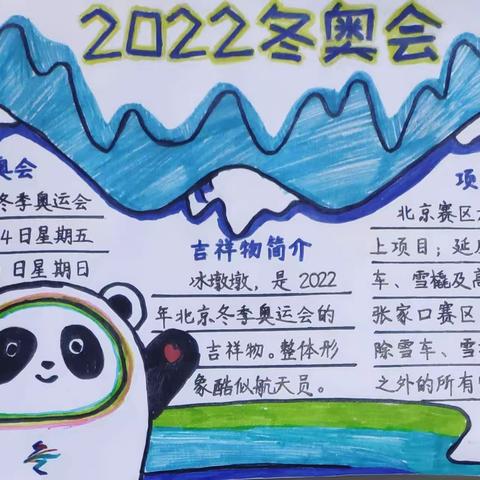 2022冬奥会
奥会
冬季奥运会
4日星期五
日星期日
吉祥物简介
冰墩墩，是2022
年北京冬季奥运会的
吉祥物。整体形
象酷似航天员。
项
北京赛区
上项目；延
车、雪橇及高
张家口赛区
除雪车、雪
之外的所有